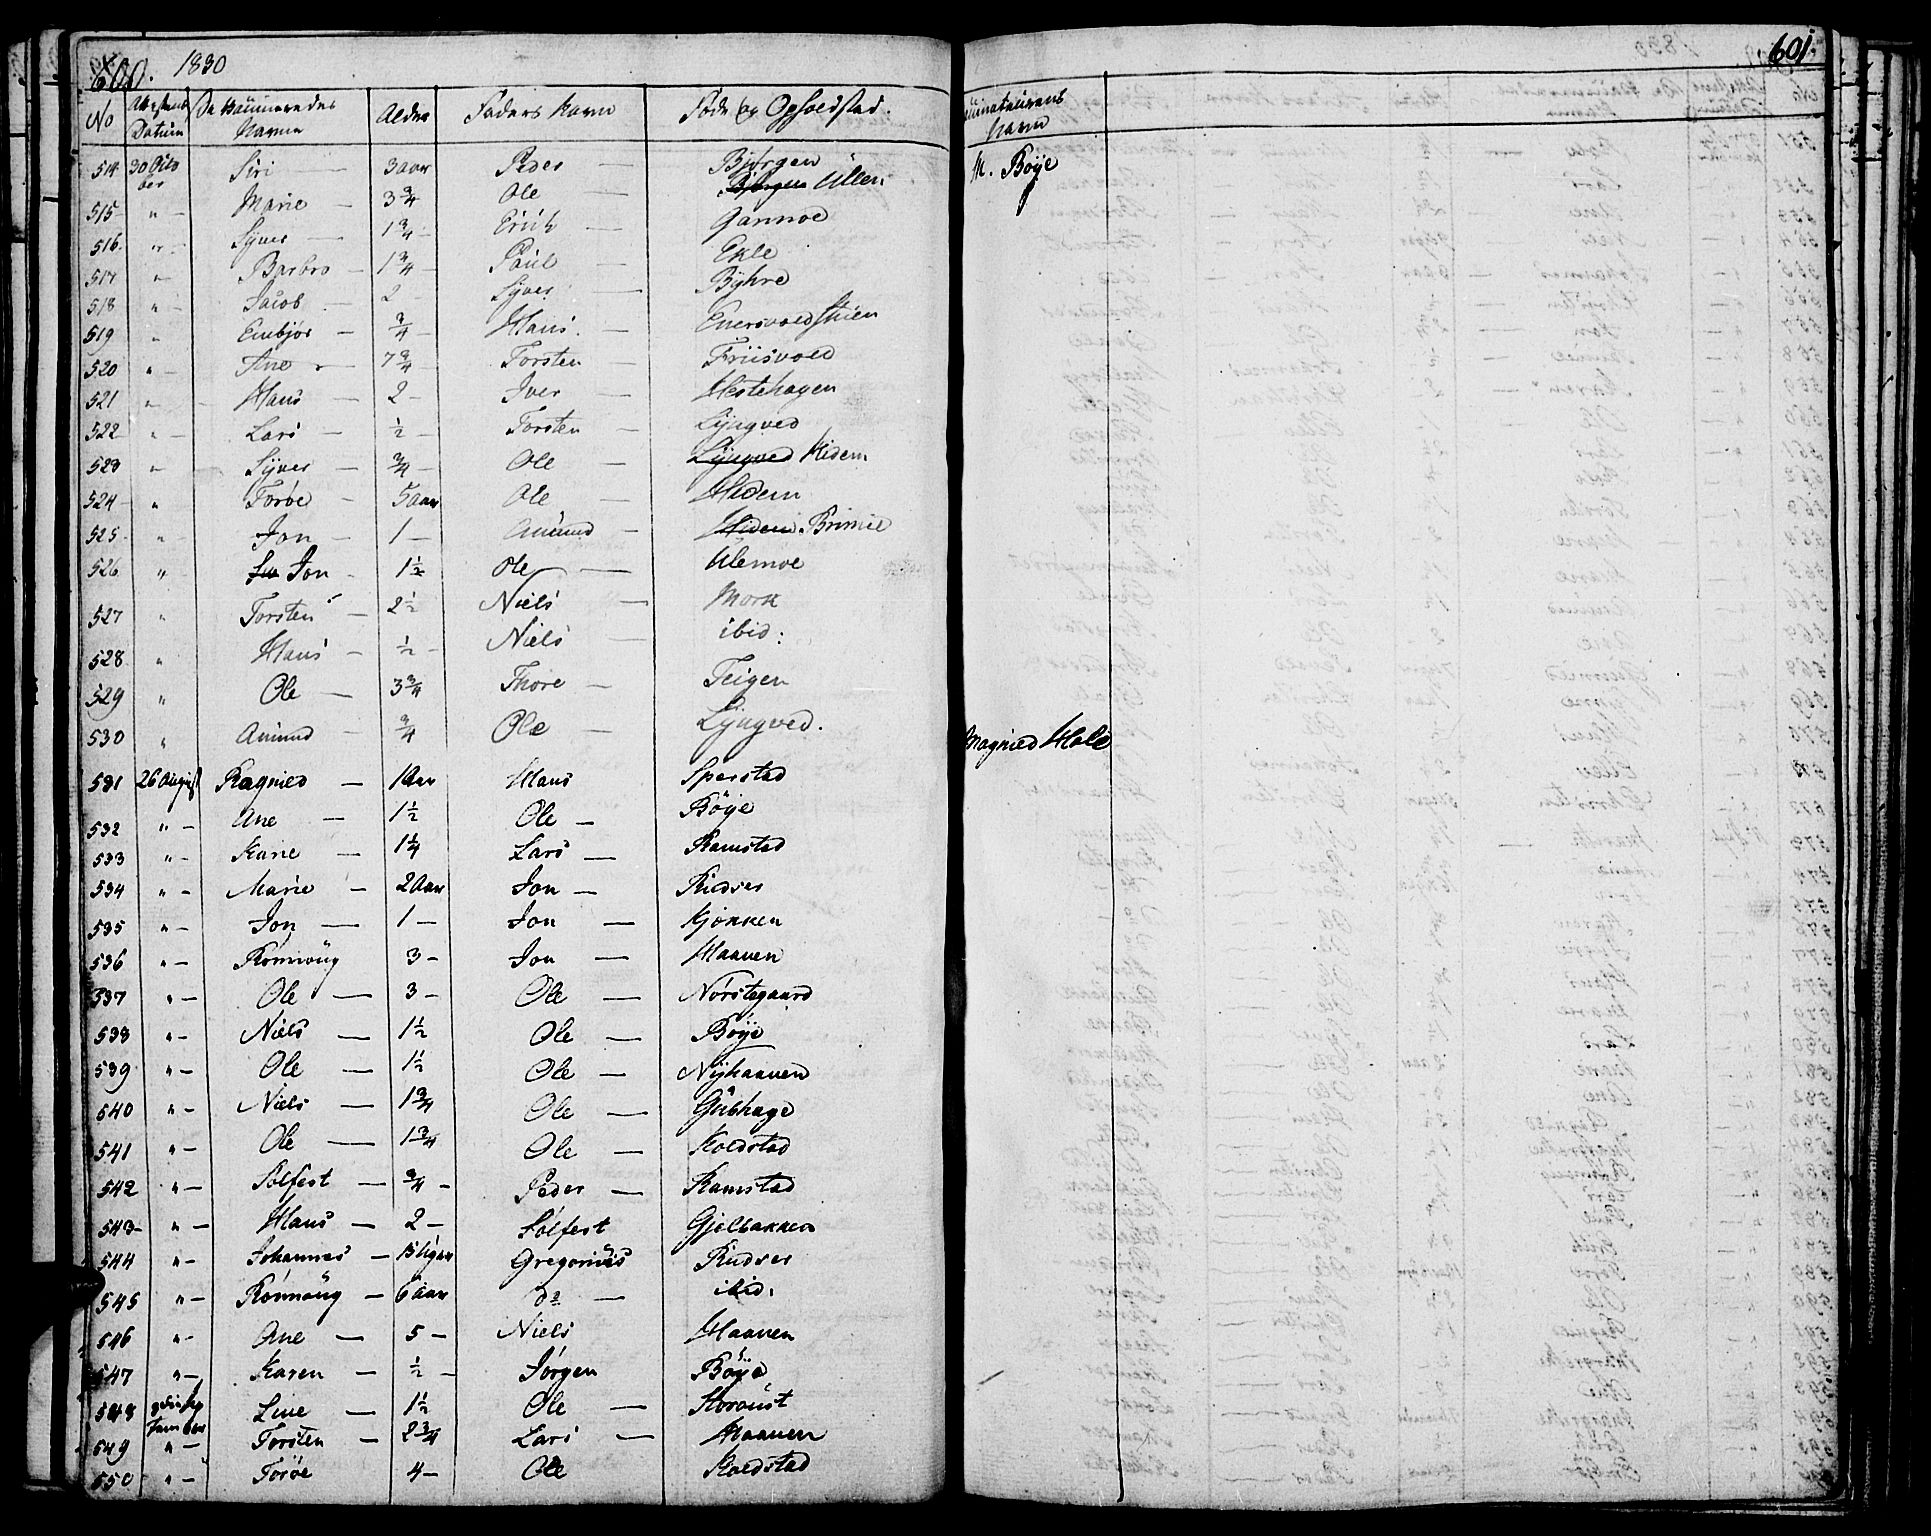 600. 1830
No Attestens Datum De Vaccineredes Navne Alder Faders Navn Føde og Opholdsted.
514 30 Octo ber Siri — 3 aar Peder Bjørgen
515 " - Marie — 3 3/4 Ole — Bjørgen Ullen
516 " - Syver — 1 3/4 - Erich — Garmoe
517 " - Barbro - 1 3/4 - Paul — Ekle
518 " - Jacob - 2 - Syver — Byhre
519 " Embjør - 3/4 - Hans. - Enersvoldstuen
520 " - Ane - 7 3/4 - Torsten — Friisvold
521 " - Hans - 2 - Iver — Hestehagen
522 " - Lars - 1/2 - Torsten - Lyngved
523 " - Syver - 3/4 - Ole — Lyngved Hidem
524 " Torøe - 5 aar Ole — Hidem
525 " Jon - 1 - Amund - Hidem. Brimie
526 " Jon - 1 1/2 Ole — Ulemoe
527 " Torsten - 2 1/2 Niels — Mork
528 " Hans - 1/2 - Niels — ibid:
529 " Ole - 3 3/4 Thore - Teigen
530 " Amund - 3/4 Ole — Lyngved.
531 26 August Ragnild — 1 Aar Hans Sperstad
532 " - Ane — 1 1/2 Ole - Bøye
533 " - Karie — 1 1/4 Lars — Ramstad
534 " - Marie - 2 Aar Jon — Rudser
535 " - Jon — 1 - Jon — Kjøkken
536 " - Rønnoug 3 - Jon — Haaven
537 " - Ole — 3 - Ole — Nørstegaard
538 " - Niels — 1 1/2 Ole — Bøye
539 " - Ole — 1 1/2 Ole — Nyhaaven
540 " - Niels — 1 3/4 Ole — Gubhage
541 " - Ole — 1 3/4 Ole — Koldstad
542 " - Solfest — 3/4 - Peder — Ramstad
543 " - Hans — 2 - Solfest Gjelbakken
544 " - Johannes - 15 Uger Gregorius Rudser
545 " - Rønnoug - 6 aar do — ibid.
546 " - Ane — 5 - Niels Haaven
547 " - Karen — 1/2 - Jørgen Bøye
548 Line — 1 1/2 Ole — Storøust
549 " - Torsten - 2 3/4 Lars — Haaven
550 " - Torøe 4 - Ole Koldstad
601.
Navn
M. Bøye
Magnild Hole